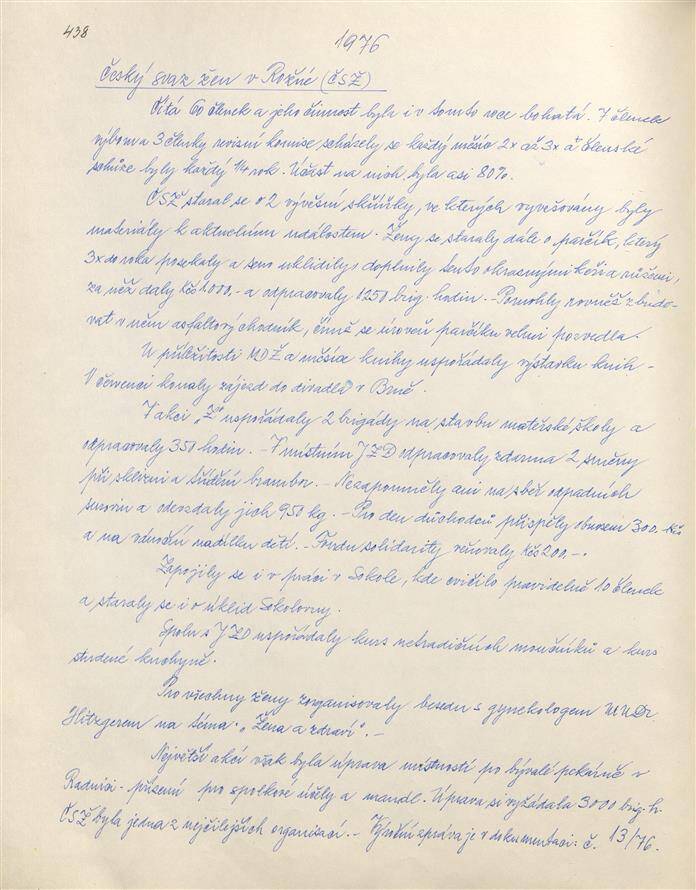 438
1976
Český svaz žen v Rožné (ČSŽ)
Čítá 60 členek a jeho činnost byla i v tomto roce bohatá. 7 členek
výboru a 3 členky revisní komise scházely se každý měsíc 2x až 3x a členské
schůze byly každý 1/4 rok. Účast na nich byla asi 80%.
ČSŽ staral se o 2 vývěsní skříňky, ve kterých vyvěšovány byly
materiály k aktuelním událostem. Ženy se staraly dále o parčík, který
3x do roka posekaly a seno uklidily, doplnily tento okrasnými keři a růžemi,
za něž daly Kčs 1.000,- a odpracovaly 1250 brig. hodin. - Pomohly rovněž zbudo-
vat v něm asfaltový chodník, čímž se úroveň parčíku velmi pozvedla.
U příležitosti MDŽ a měsíce knihy uspořádaly výstavku knih -
V červenci konaly zájezd do divadla v Brně.
V akci „Z" uspořádaly 2 brigády na stavbu mateřské školy a
odpracovaly 350 hodin. - V místním JZD odpracovaly zdarma 2 směny
při sklizni a třídění brambor. - Nezapomněly ani na sběr odpadních
surovin a odevzdaly jich 950 kg. - Pro den důchodců přispěly obnosem 300.- Kčs
a na vánoční nadílku dětí. - Fondu solidarity věnovaly Kčs 200.-.
Zapojily se i v práci v Sokole, kde cvičilo pravidelně 10 členek
a staraly se i o úklid Sokolovny.
Spolu s JZD uspořádaly kurs netradičních moučníků a kurs
studené kuchyně.
Pro všechny ženy zorganisovaly besedu s gynekologem MUDr
na téma: „Žena a zdraví". -
Největší akcí však byla úprava místností po bývalé pekárně v
Radnici - přízemí pro spolkové účely a mandl. Úprava si vyžádala 3000 brig. h.
ČSŽ byla jedna z nejčilejších organisací. - Výroční zpráva je v dokumentaci: č. 13/76.